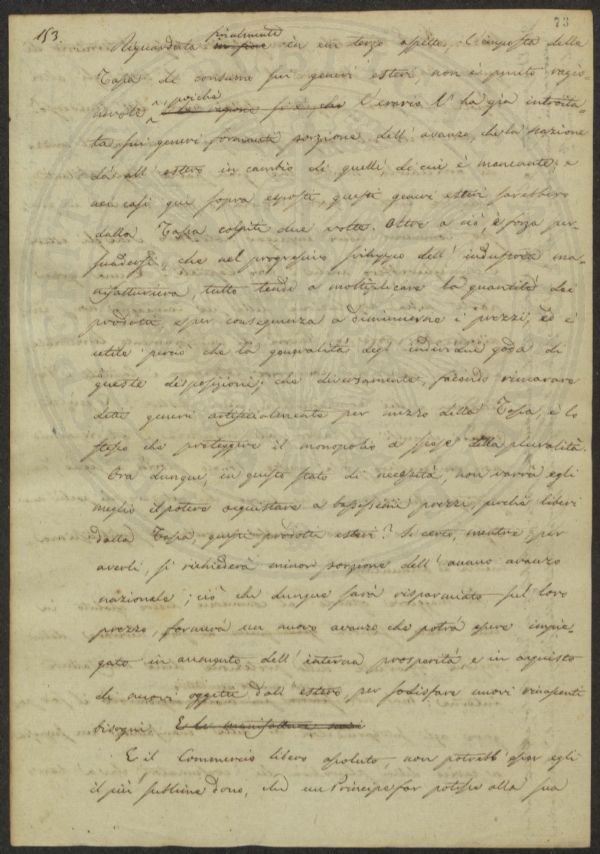 153
73
finalmente
Riguardata in fine in un terzo aspetto, l'imposta della
Tassa di consumo sui generi esteri, non è punto ragio-
poichè
nevole, la ragione si è che l'erario l'ha già introita-
ta sui generi formanti porzione dell'avanzo, che la nazione
dà all'estero in cambio di quelli, di cui è mancante; e
nei casi qui sopra esposti, questi generi esteri sarebbero
dalla Tassa colpiti due volte. Oltre a ciò, è forza per-
suadersi, che nel progressivo sviluppo dell'industria ma-
nifatturiera, tutto tende a moltiplicare la quantità dei
prodotti, e per conseguenza a diminuirne i prezzi; ed è
utile perciò che la generalità degl'individui goda di
queste disposizioni; che diversamente, facendo rincarare
detti generi artificialmente per mezzo della Tassa, è lo
stesso che proteggere il monopolio a spese della pluralità.
Ora dunque, in questo stato di necessità, non varrà egli
meglio il potere acquistare a bassissimi prezzi, perchè liberi
dalla Tassa, questi prodotti esteri? Si certo, mentre per
averli, si richiederà minor porzione dell'annuo avanzo
nazionale; ciò che dunque sarà risparmiato sul loro
prezzo, formerà un nuovo avanzo che potrà essere impie-
gato in aumento dell'interna prosperità, e in acquisto
di nuovi oggetti dall'estero, per sodisfare nuovi rinascenti
bisogni. E le manifatture
E il Commercio libero assoluto, non potrebb'esser egli
il più sublime dono, che un Principe far potesse alla sua